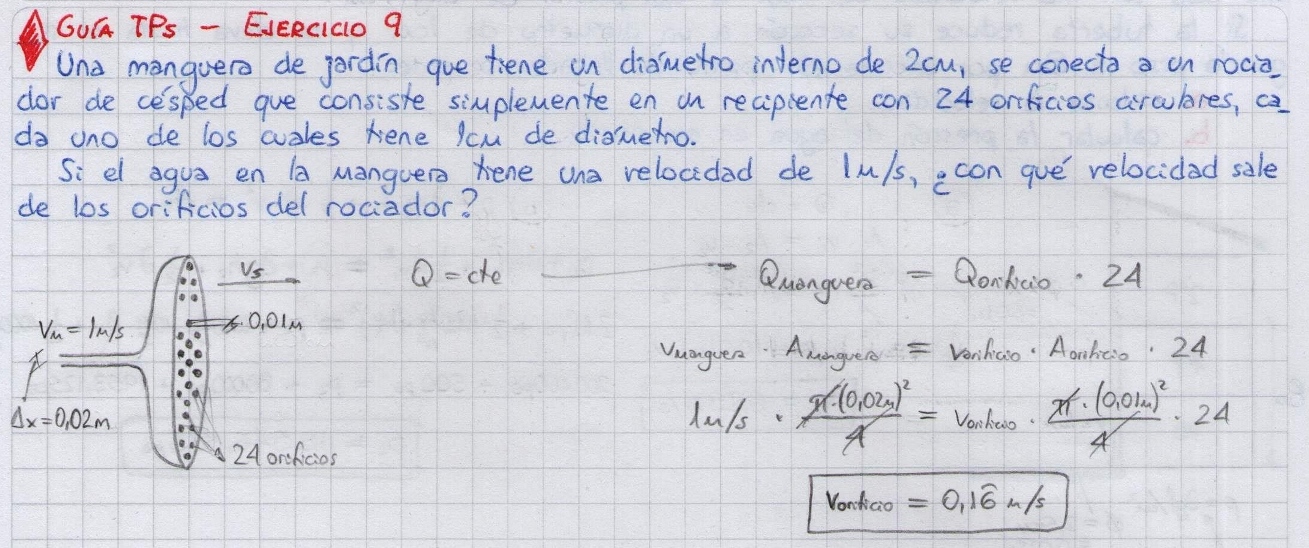 GUÍA TPs – EJERCICIO 9
Una manguera de jardín que tiene un diámetro interno de 2cm, se conecta a un rocia_
dor de césped que consiste simplemente en un recipiente con 24 orificios circulares, ca_
da uno de los cuales tiene 1cm de diámetro.
Si el agua en la manguera tiene una velocidad de 1m/s, ¿con qué velocidad sale
de los orificios del rociador?
Vs
Q = cte → Qmanguera = Qorificio · 24
Vm = 1m/s
0,01m
Vmanguera · Amanguera = Vorificio · Aorificio · 24
Δx = 0,02m
1m/s · π·(0,02m)²/4 = Vorificio · π·(0,01m)²/4 · 24
24 orificios
Vorificio = 0,16̂ m/s